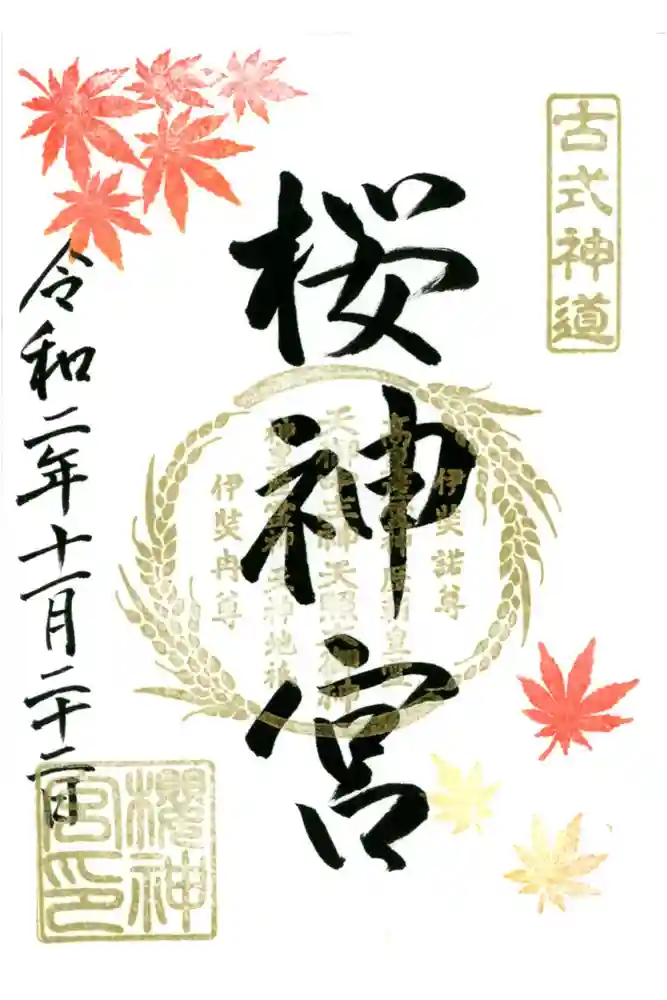 古式神道
桜神宮
伊奘諾尊
高皇産霊神歴朝皇霊
天御中主神天照大御神
神皇産霊神天神地祇
伊奘冉尊
令和二年十一月二十二日
櫻神
宮印